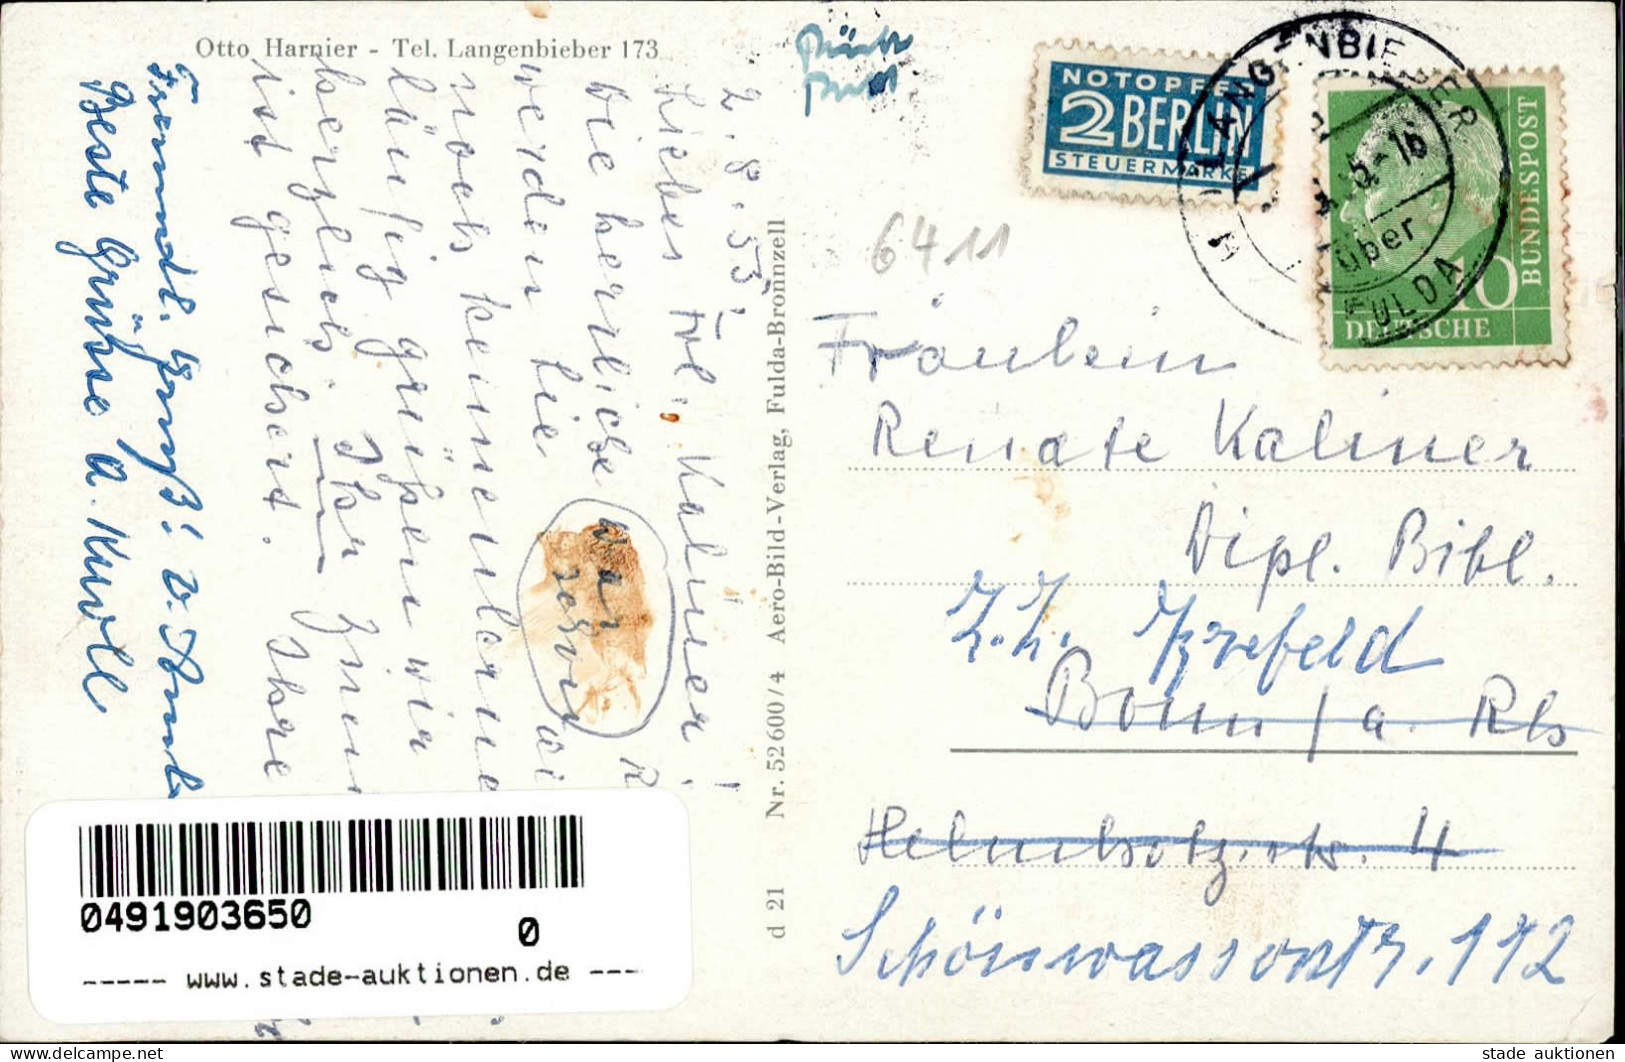 Otto Harnier - Tel. Langenbieber 173
2.8.53.
Liebes Frl. Kaliner!
Die herrliche
werden Sie wi
noch kennenlerne
läufig grüßen wir
herzlich. Ihr Zim
ist gesichert. Ihre
war
schon
Freundl. Gruß! v.
Beste Grüße A.
Nr. 52600/4 Aero-Bild-Verlag, Fulda-Bronnzell
d 21
NOTOPFER
2 BERLIN
STEUERMARKE
LANGENBIEBER
über
FULDA
16
BUNDESPOST
10
DEUTSCHE
6411
Fräulein
Renate Kaliner
Dipl. Bibl.
z.Z. Krefeld
Bonn/a. Rh
Helmholtzstr. 4
Schönwasserstr. 112
0491903650
0
----- www.stade-auktionen.de ---
delcampe.net
stade auktionen